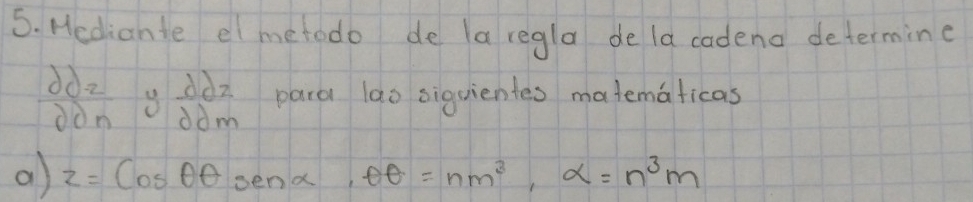 5. Mediante el metodo de la regla de la cadena determine
∂∂z/∂∂n y ∂∂z/∂∂m para las siguientes matemáticas
a) z = Cos θθ sen α , θθ = nm³ , α = n³m